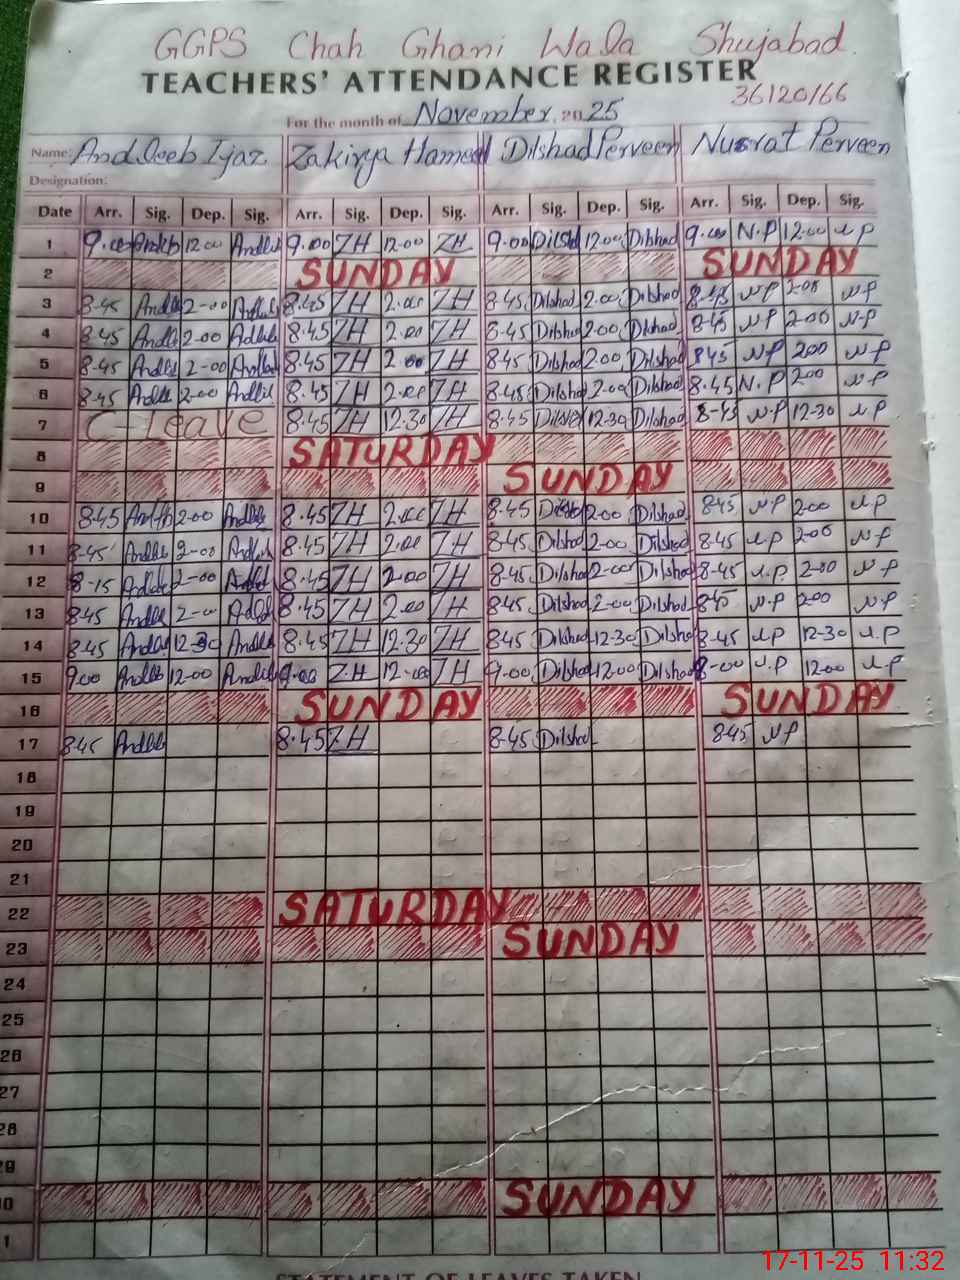 GGPS Chah Ghani Wala Shujabad
TEACHERS' ATTENDANCE REGISTER
36120166
For the month of November, 2025
Name: Andleeb Ijaz Zakirya Hameed Dilshad Perveen Nusrat Perveen
Designation:
Date Arr. Sig. Dep. Sig. Arr. Sig. Dep. Sig. Arr. Sig. Dep. Sig. Arr. Sig. Dep. Sig.
1 9.00 12.00 9.00 ZH 12.00 ZH 9.00 12.00 Dilshad 9.00 N.P 12.00 N.P
2 SUNDAY SUNDAY
3 8-45 2-00 8.45 ZH 2.00 ZH 8-45 Dilshad 2.00 Dilshad 8-45 NP 2-00 NP
4 8-45 2-00 8.45 ZH 2.00 ZH 8-45 Dilshad 2.00 Dilshad 8-45 NP 2-00 N-P
5 8-45 2-00 8.45 ZH 2.00 ZH 8-45 Dilshad 2.00 Dilshad 845 NP 200 NP
6 8-45 2-00 8.45 ZH 2.00 ZH 8-45 Dilshad 2-00 Dilshad 8.45 N.P 200 NP
7 C-Leave 8.45 ZH 12.30 ZH 8.45 12-30 Dilshad 8-45 N.P 12-30 N.P
8 SATURDAY
9 SUNDAY
10 8.45 2-00 8.45 ZH 2.00 ZH 8-45 2-00 Dilshad 845 NP 2-00 NP
11 8-45 2-00 8.45 ZH 2.00 ZH 8-45 Dilshad 2-00 Dilshad 8-45 N.P 2-00 NP
12 8-15 2-00 8.45 ZH 2.00 ZH 8-45 Dilshad 2-00 Dilshad 8-45 N.P 2-00 NP
13 8-45 2-00 8.45 ZH 2.00 ZH 845 Dilshad 2-00 Dilshad 845 N.P 200 NP
14 8-45 12-30 8.45 ZH 12.30 ZH 8-45 Dilshad 12-30 Dilshad 8-45 N.P 12-30 N.P
15 900 12-00 9.00 Z.H 12.00 ZH 9.00 Dilshad 12.00 Dilshad N.P 12.00 N-P
16 SUNDAY SUNDAY
17 8-45 8.45 ZH 8-45 Dilshad 845 NP
18
19
20
21
22 SATURDAY
23 SUNDAY
24
25
26
27
28
29
0 SUNDAY
1
STATEMENT OF LEAVES TAKEN
17-11-25 11:32